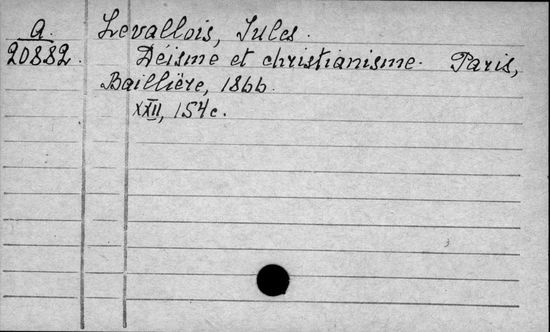 A. Levallois, Jules.
20882. Déisme et christianisme. Paris,
Baillière, 1866.
XXII, 154 c.